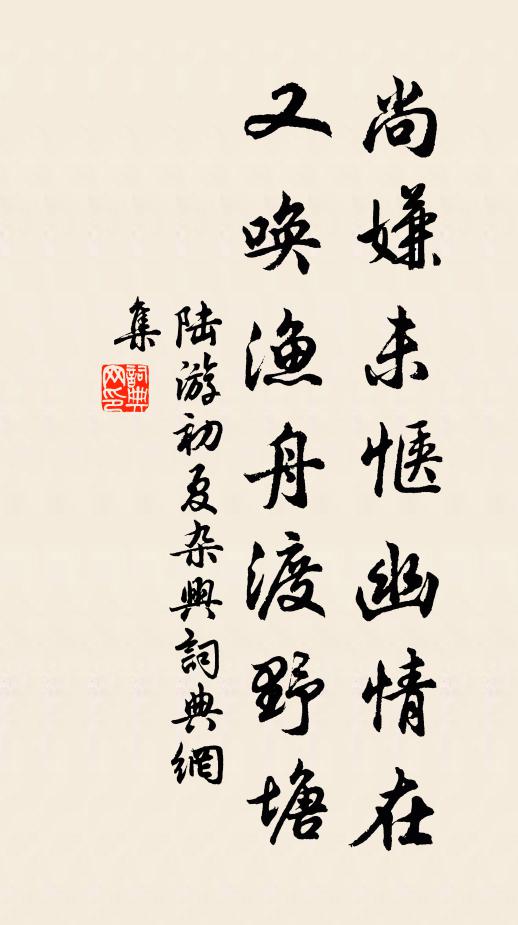 尚嫌未惬幽情在
又唤渔舟渡野塘
陆游初夏杂興詞典網
集
詞典网印